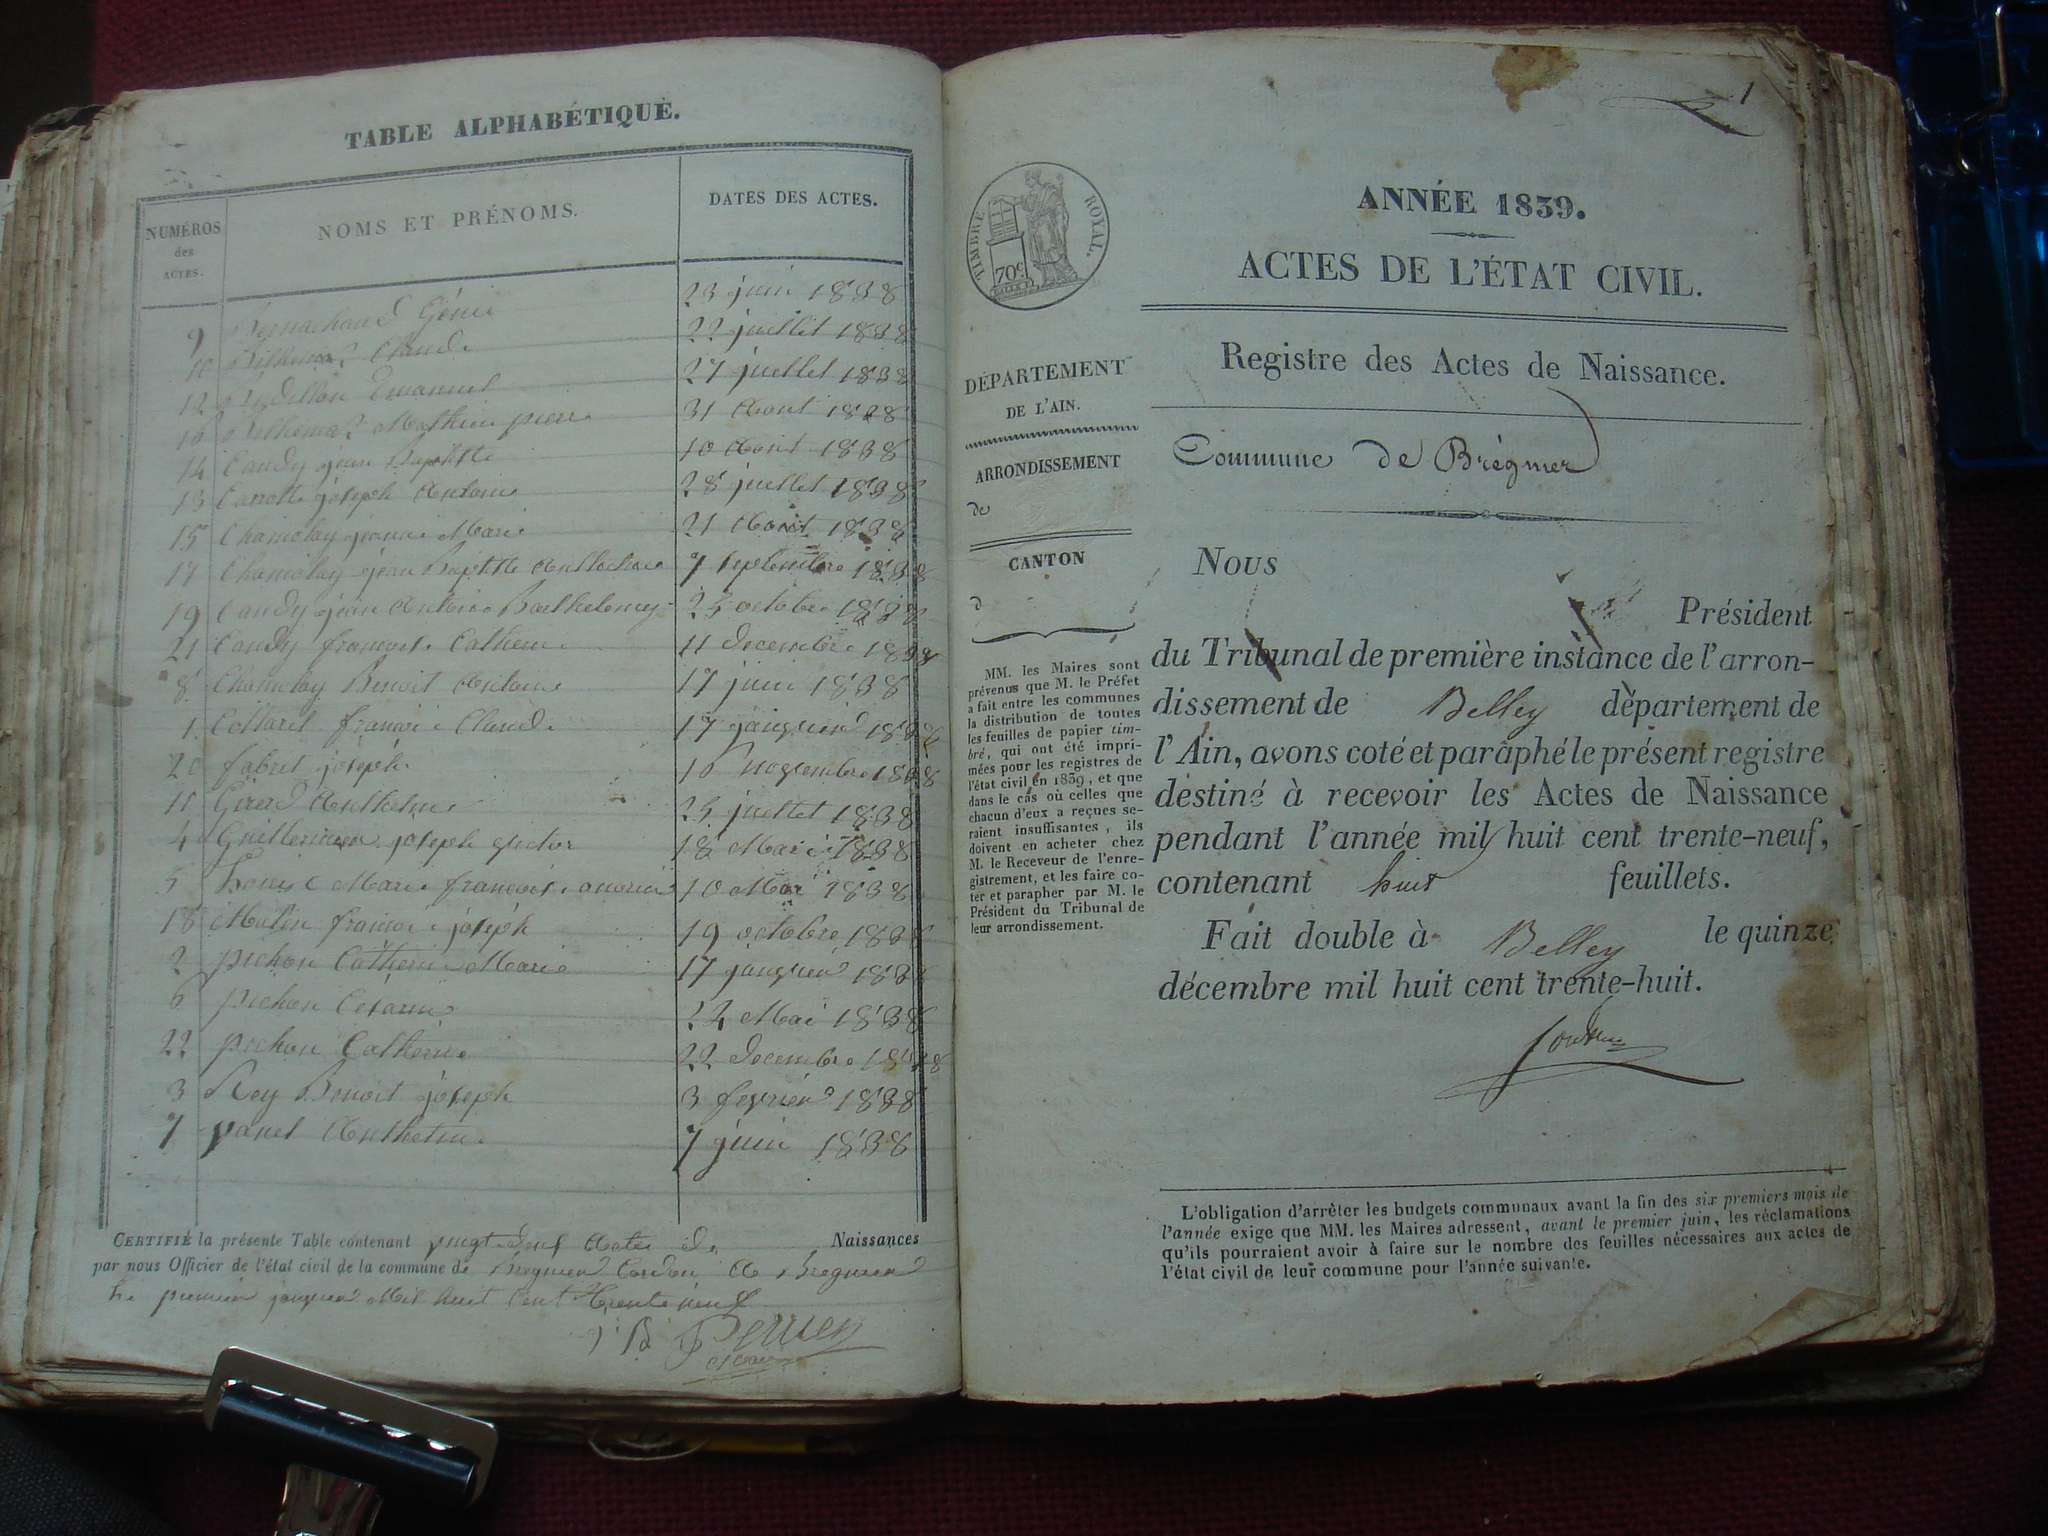 TABLE ALPHABÉTIQUE.
NUMÉROS
des
ACTES.
NOMS ET PRÉNOMS.
DATES DES ACTES.
9 Génie 23 juin 1838
10 Claude 22 juillet 1838
12 Emanuel 27 juillet 1838
16 Mathieu pierre 31 Aout 1838
14 Candy jean Baptiste 10 Aout 1838
13 joseph Antoine 28 juillet 1838
15 Chamelay jeanne Marie 21 Aout 1838
17 Chamelay jean Baptiste 7 septembre 1838
19 Candy jean Antoine Barthelemy 25 octobre 1838
21 Candy françoise Catherine 11 decembre 1838
8 Chamelay Benoit Antoine 17 juin 1838
1 Collaret Claude 17 janvier 1838
20 fabret joseph 10 novembre 1838
11 Girard Anthelme 25 juillet 1838
4 Guillermier joseph victor 18 1838
5 Marie françoise 10 Mai 1838
18 Mulin joseph 19 octobre 1838
2 pichon Catherine Marie 17 janvier 1838
6 pichon Césarine 22 Mai 1838
22 pichon Catherine 22 decembre 1838
3 Rey Benoit joseph 3 fevrier 1838
7 Anthelme 7 juin 1838
CERTIFIÉ la présente Table contenant vingt deux Actes de Naissances
par nous Officier de l'état civil de la commune de Bregnier Cordon A Bregnier
Le premier janvier Mil huit Cent Trente neuf
1
TIMBRE ROYAL.
70 c.
ANNÉE 1839.
ACTES DE L'ÉTAT CIVIL.
Registre des Actes de Naissance.
Commune de Brégnier
DÉPARTEMENT
DE L'AIN.
ARRONDISSEMENT
de
CANTON
d
MM. les Maires sont
prévenus que M. le Préfet
a fait entre les communes
la distribution de toutes
les feuilles de papier tim-
bré, qui ont été impri-
mées pour les registres de
l'état civil en 1839, et que
dans le cas où celles que
chacun d'eux a reçues se-
raient insuffisantes, ils
doivent en acheter chez
M. le Receveur de l'enre-
gistrement, et les faire co-
ter et parapher par M. le
Président du Tribunal de
leur arrondissement.
Nous
Président
du Tribunal de première instance de l'arron-
dissement de Belley département de
l'Ain, avons coté et paraphé le présent registre
destiné à recevoir les Actes de Naissance
pendant l'année mil huit cent trente-neuf,
contenant huit feuillets.
Fait double à Belley le quinze
décembre mil huit cent trente-huit.
L'obligation d'arrêter les budgets communaux avant la fin des six premiers mois de
l'année exige que MM. les Maires adressent, avant le premier juin, les réclamations
qu'ils pourraient avoir à faire sur le nombre des feuilles nécessaires aux actes de
l'état civil de leur commune pour l'année suivante.